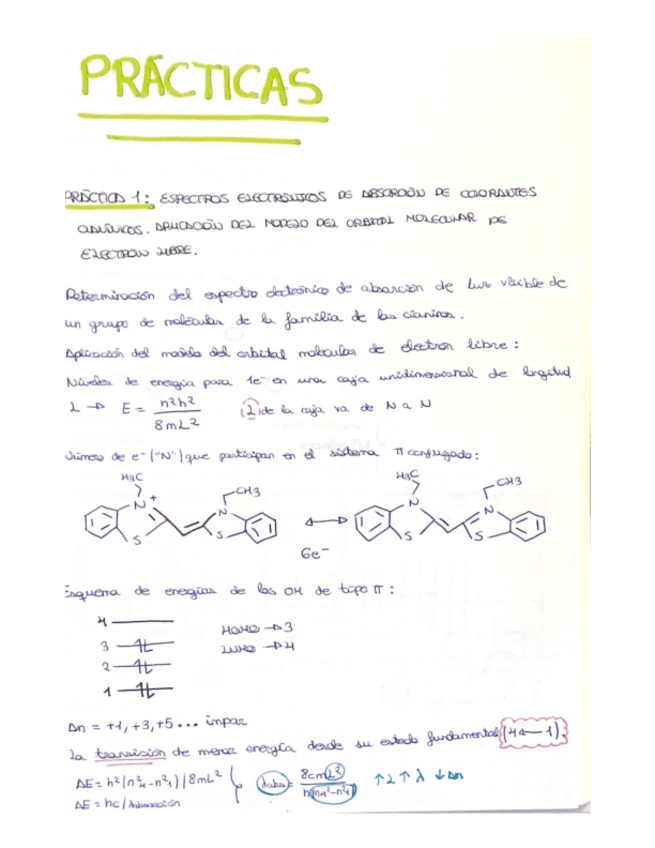 PRÁCTICAS
PRÁCTICA 1: ESPECTROS ELECTRÓNICOS DE ABSORCIÓN DE COLORANTES
CIANÍNICOS. APLICACIÓN DEL MODELO DEL ORBITAL MOLECULAR DE
ELECTRÓN LIBRE.
Determinación del espectro electrónico de absorción de luz visible de
un grupo de moléculas de la familia de las cianinas.
Aplicación del modelo del orbital molecular de electrón libre:
Niveles de energía para 1e⁻ en una caja unidimensional de longitud
L → E = n²h² / 8mL² (L) de la caja va de N a N
Número de e⁻ ("N") que participan en el sistema π conjugado:
H₃C CH₃ H₃C CH₃
N + N N N
S S S S
6e⁻
Esquema de energías de los OM de tipo π:
4 HOMO → 3
3 LUMO → 4
2
1
Δn = +1, +3, +5 ... impar
La transición de menor energía desde su estado fundamental (4 ← 1).
ΔE = h²(n²₄ - n²₁) / 8mL² λabs = 8cmL² / h(n₄² - n²₁) ↑L ↑λ ↓Δn
ΔE = hc/λabsorción